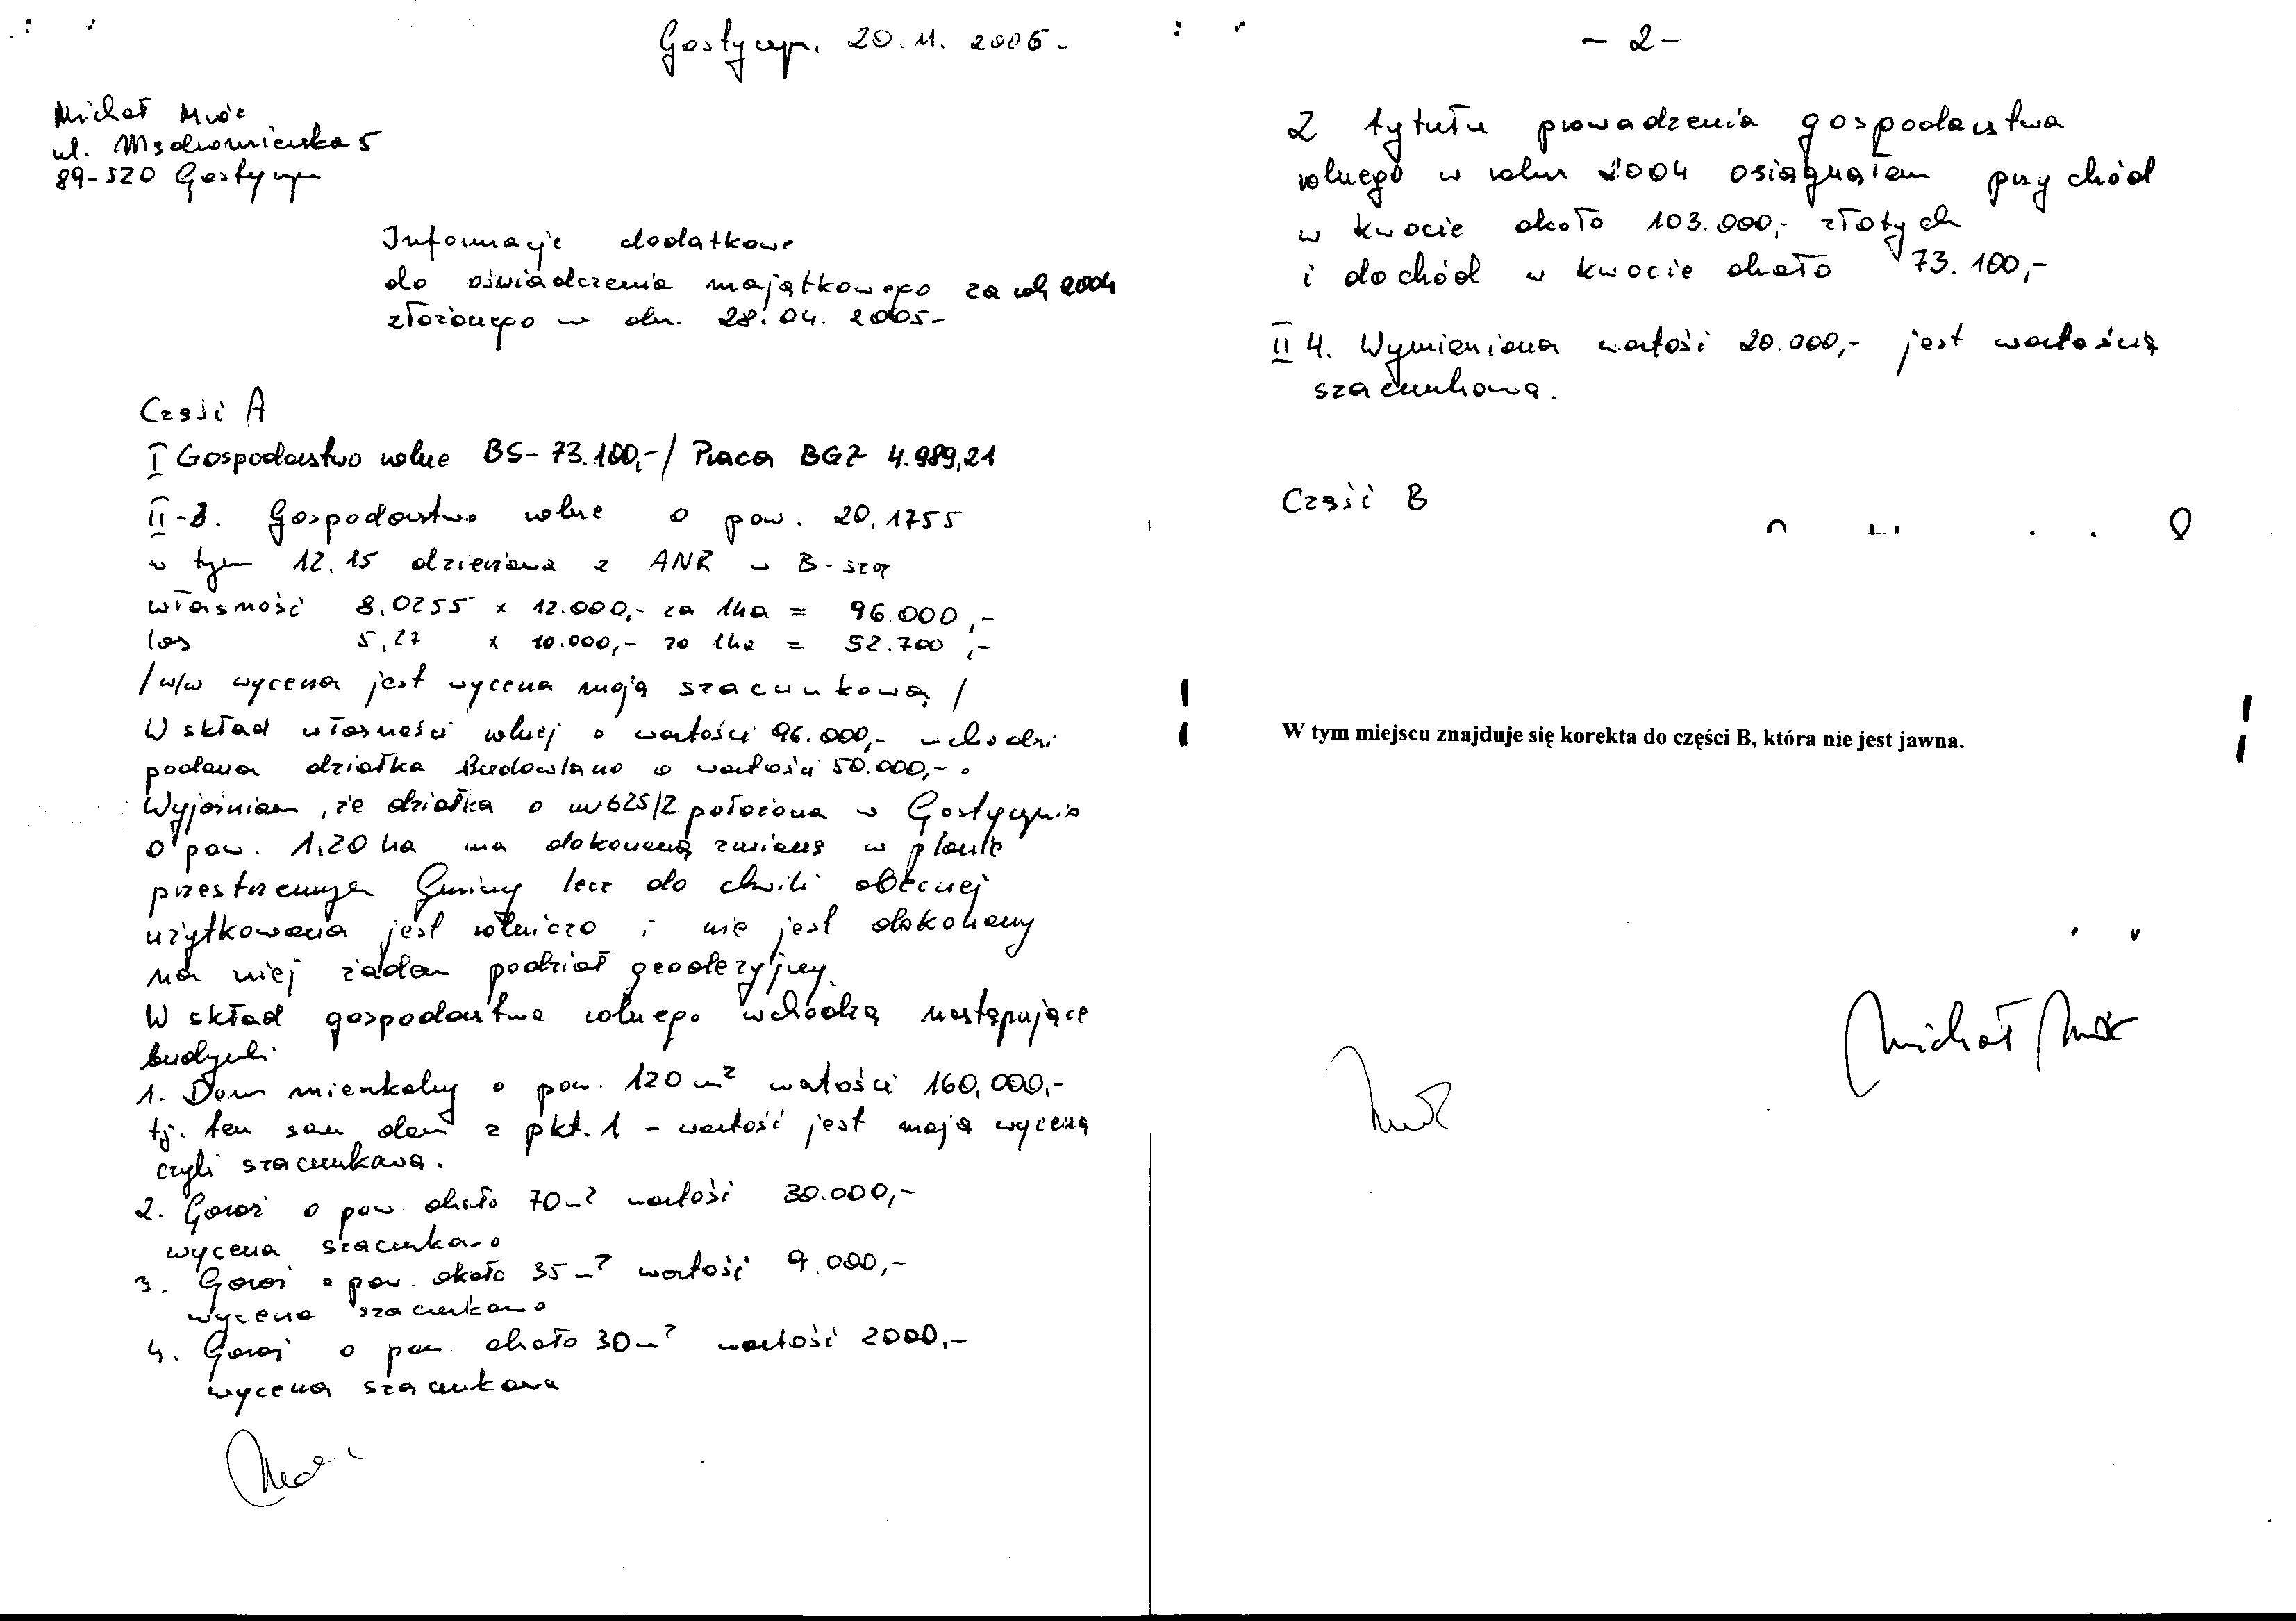 Gostycyn, 20.11.2005-
Michał Mróz
ul. Mędromierska 5
89-520 Gostycyn
Informacje dodatkowe
do oświadczenia majątkowego za rok 2004
złożonego w dn. 28.04.2005-
Część A
I Gospodarstwo rolne BS- 73.100,- / Praca BGŻ 4.989,21
II-3. Gospodarstwo rolne o pow. 20,1755
w tym 12.15 dzierżawa z ANR w B-szcz
własność 8,0255 x 12.000,- za 1ha = 96.000,-
las 5,27 x 10.000,- za 1ha = 52.700,-
/w/w wycena jest wycena moją szacunkową/
W skład własności rolnej o wartości 96.000,- wchodzi
podana działka budowlana o wartości 50.000,-.
Wyjaśniam, że działka o nr 625/2 położona w Gostycynie
o pow. 1,20 ha ma dokonaną zmianę w planie
przestrzennym Gminy lecz do chwili obecnej
użytkowana jest rolniczo i nie jest dokonany
na niej żaden podział geodezyjny.
W skład gospodarstwa rolnego wchodzą następujące
budynki
1. Dom mieszkalny o pow. 120 m² wartości 160,000,-
tj. ten sam dom z pkt. 1 - wartość jest moją wyceną
czyli szacunkową.
2. Garaż o pow. około 70 m² wartości 30.000,-
wycena szacunkowa
3. Garaż o pow. około 35 m² wartość 9.000,-
wycena szacunkowa
4. Garaż o pow. około 30 m² wartość 2000,-
wycena szacunkowa
Mróz
- 2 -
Z tytułu prowadzenia gospodarstwa
rolnego w roku 2004 osiągnąłem przychód
w kwocie około 103.000,- złotych
i dochód w kwocie około 73.100,-
II 4. Wymieniona wartość 20.000,- jest wartością
szacunkową.
Część B
W tym miejscu znajduje się korekta do części B, która nie jest jawna.
Michał Mróz
Mróz